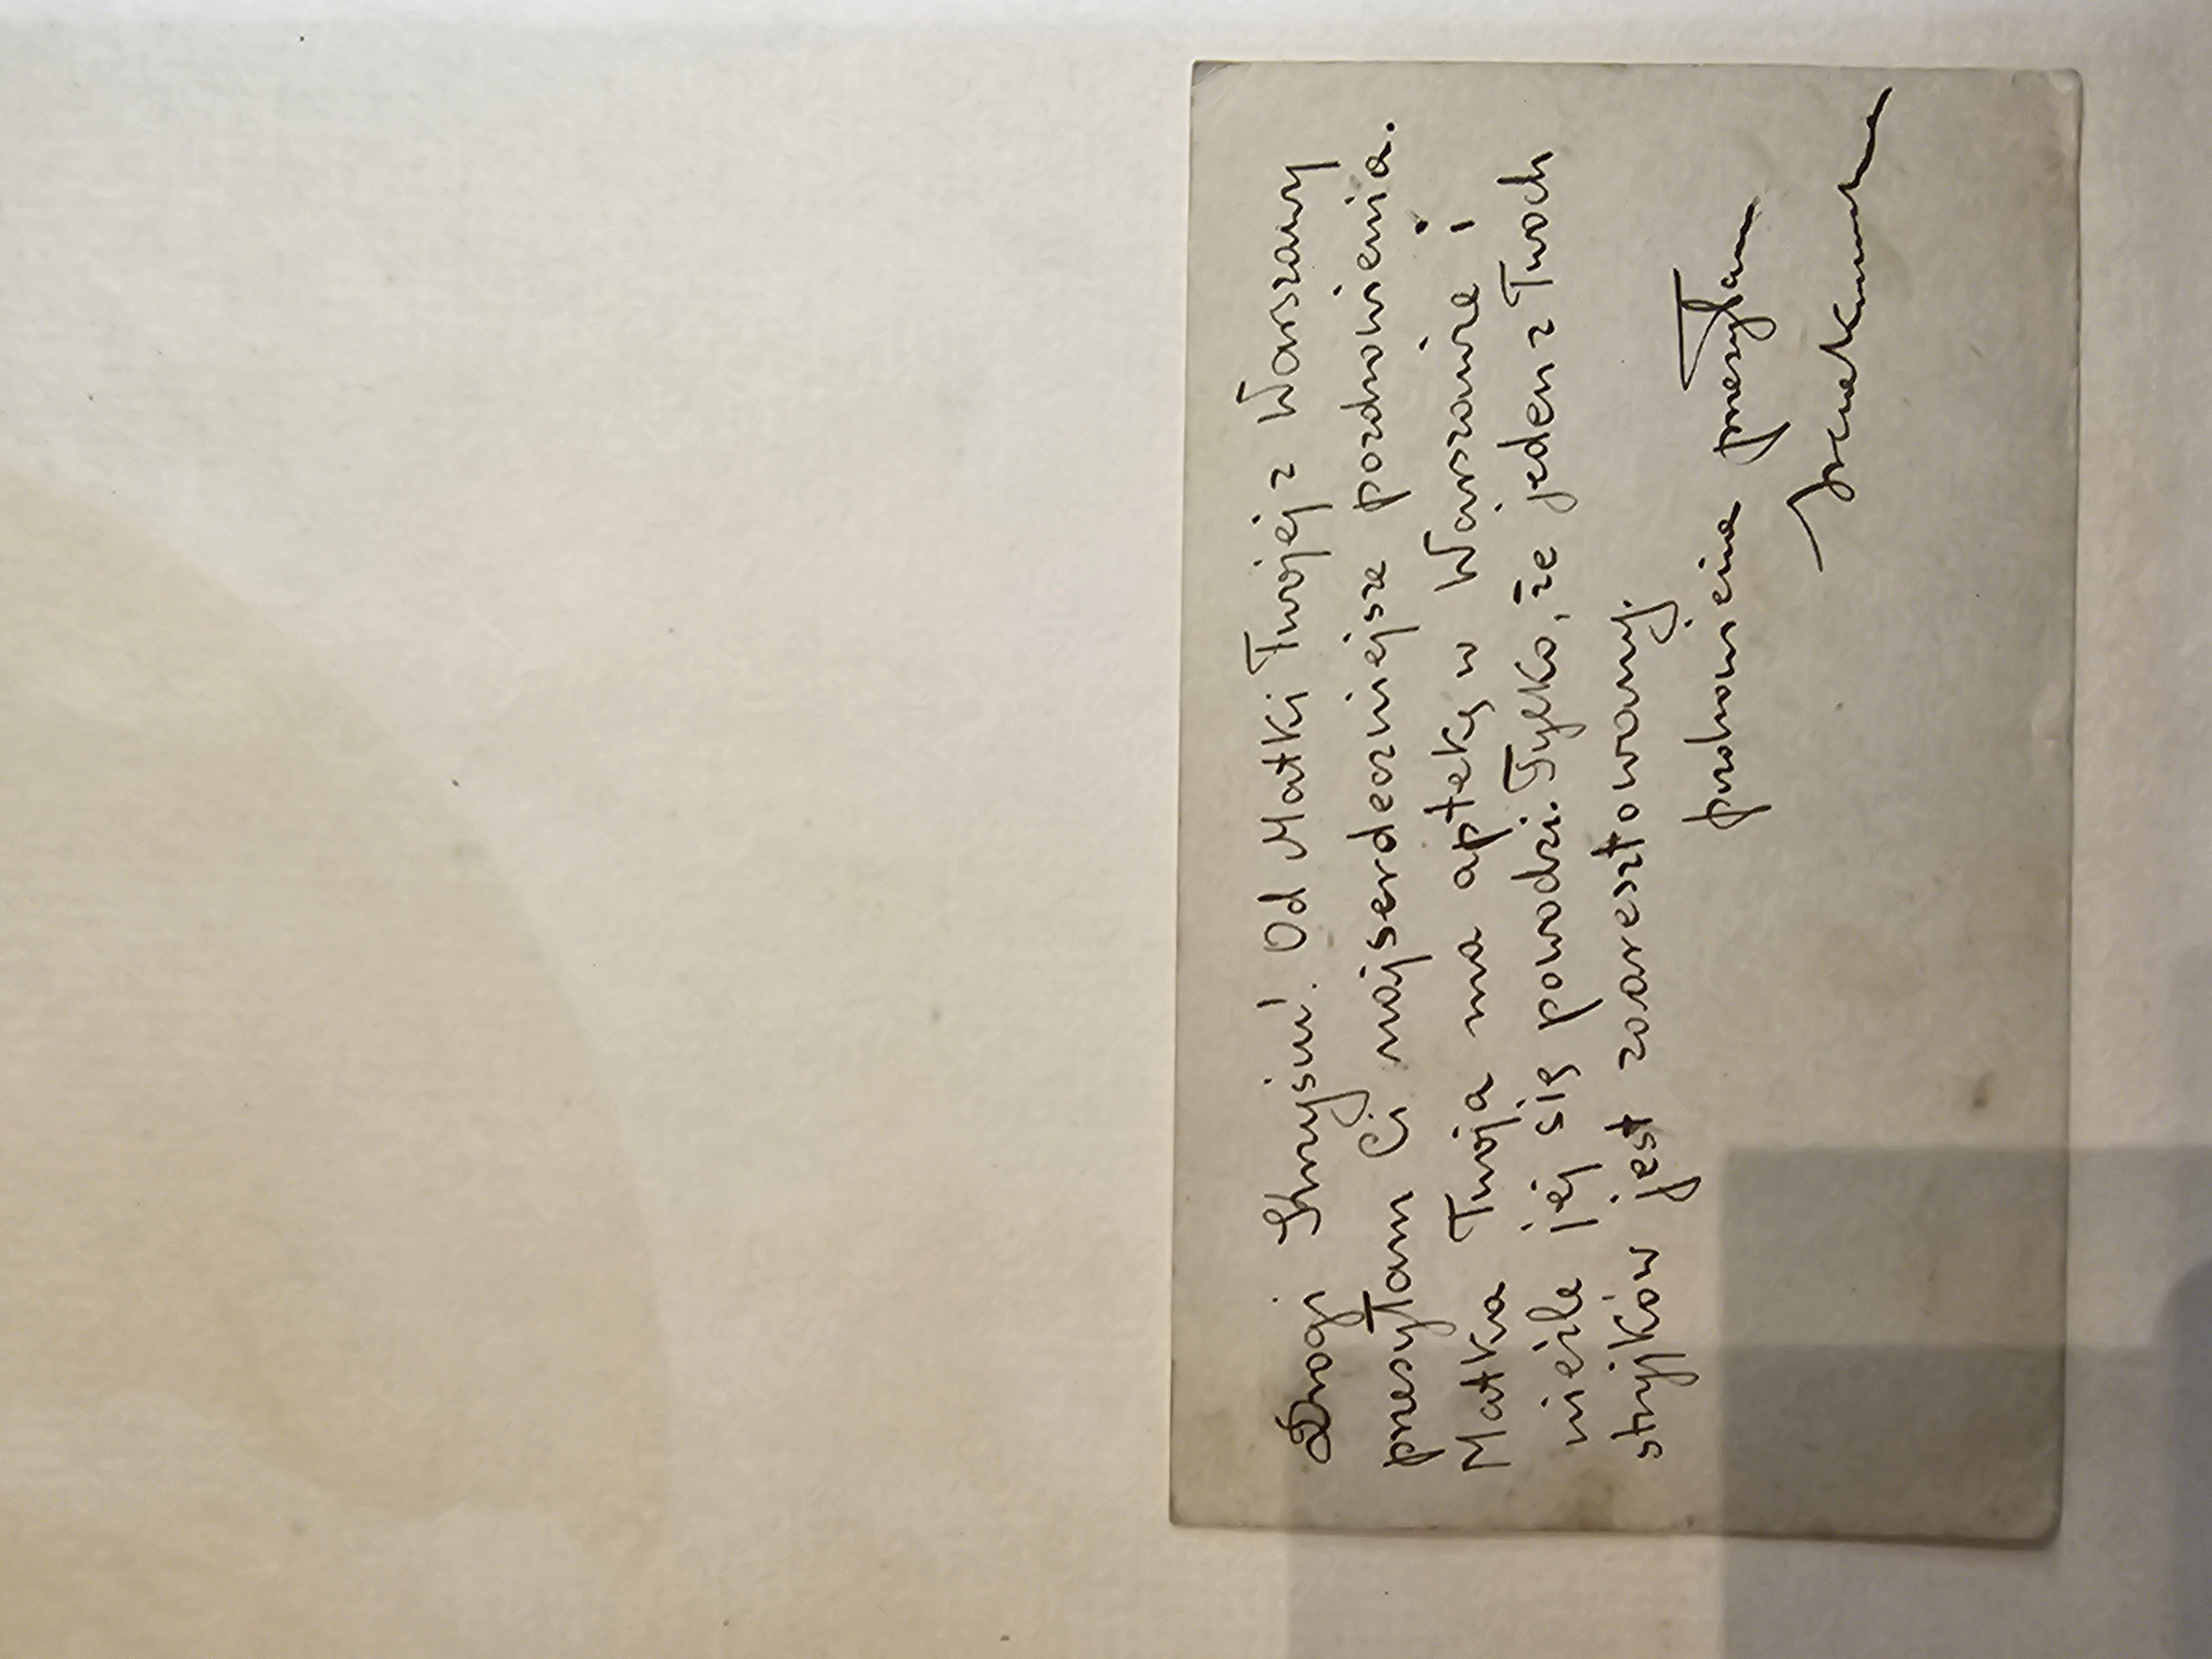 Drogi Krzysiu! Od Matki Twojéj z Warszawy
przesyłam Ci najserdeczniejsze pozdrowienia.
Matka Twoja ma aptekę w Warszawie i
nieźle jéj się powodzi. Tylko, że jeden z Twoich
stryjków jest zaaresztowany.
pozdrowienia przesyłam